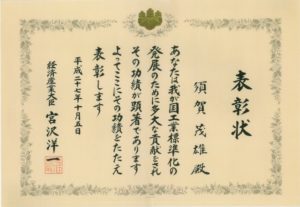 表彰状
須賀茂雄殿
あなたは我が国工業標準化の
発展のために多大な貢献をされ
その功績が顕著であります
よってここにその功績をたたえ
表彰します
平成二十七年十月五日
経済産業大臣 宮沢洋一